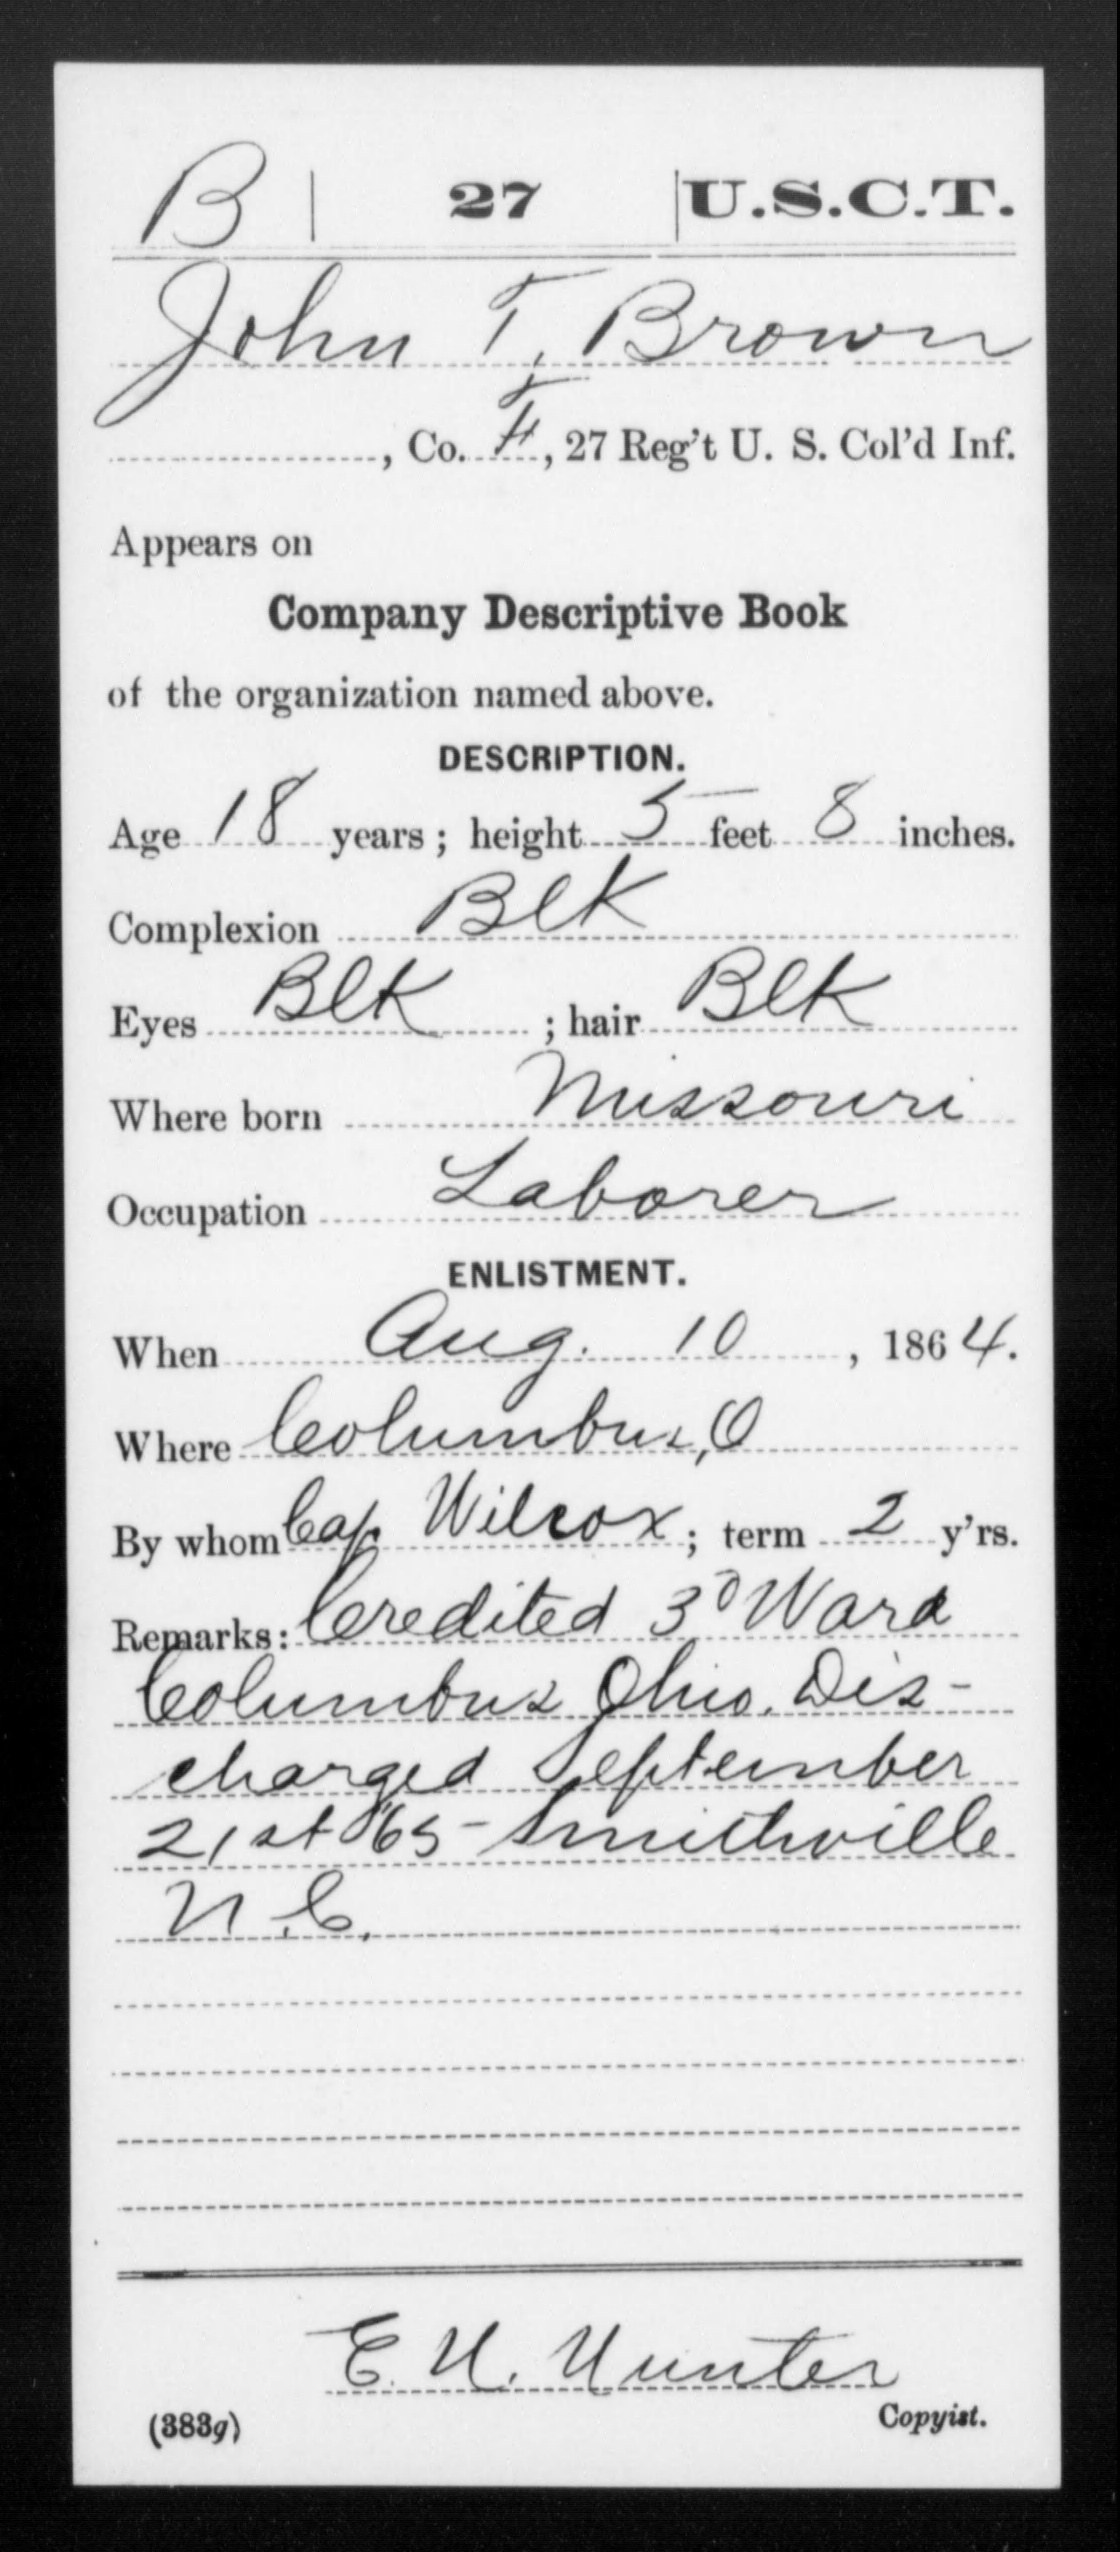 B | 27 | U.S.C.T.
John T. Brown
, Co. F, 27 Reg't U. S. Col'd Inf.
Appears on
Company Descriptive Book
of the organization named above.
DESCRIPTION.
Age 18 years; height 5 feet 8 inches.
Complexion Blk
Eyes Blk ; hair Blk
Where born Missouri
Occupation Laborer
ENLISTMENT.
When Aug. 10, 1864.
Where Columbus, O
By whom Cap. Wilcox; term 2 y'rs.
Remarks: Credited 3d Ward
Columbus Ohio. Dis-
charged September
21st '65 - Smithville
N.C.
E. H. Hunter
(383g) Copyist.